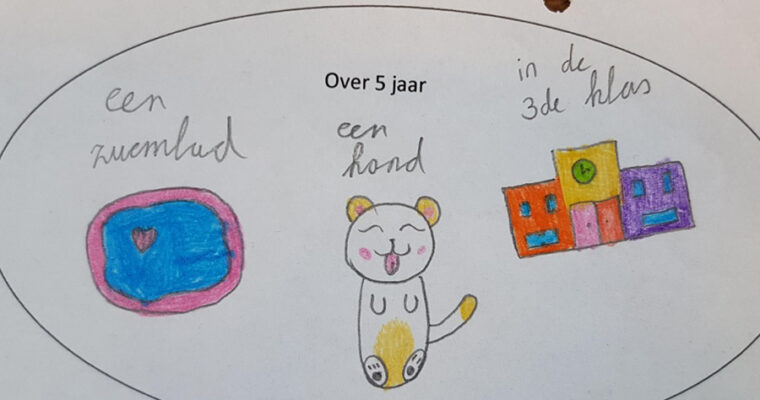 Over 5 jaar
een
zwembad
een
hond
in de
3de klas